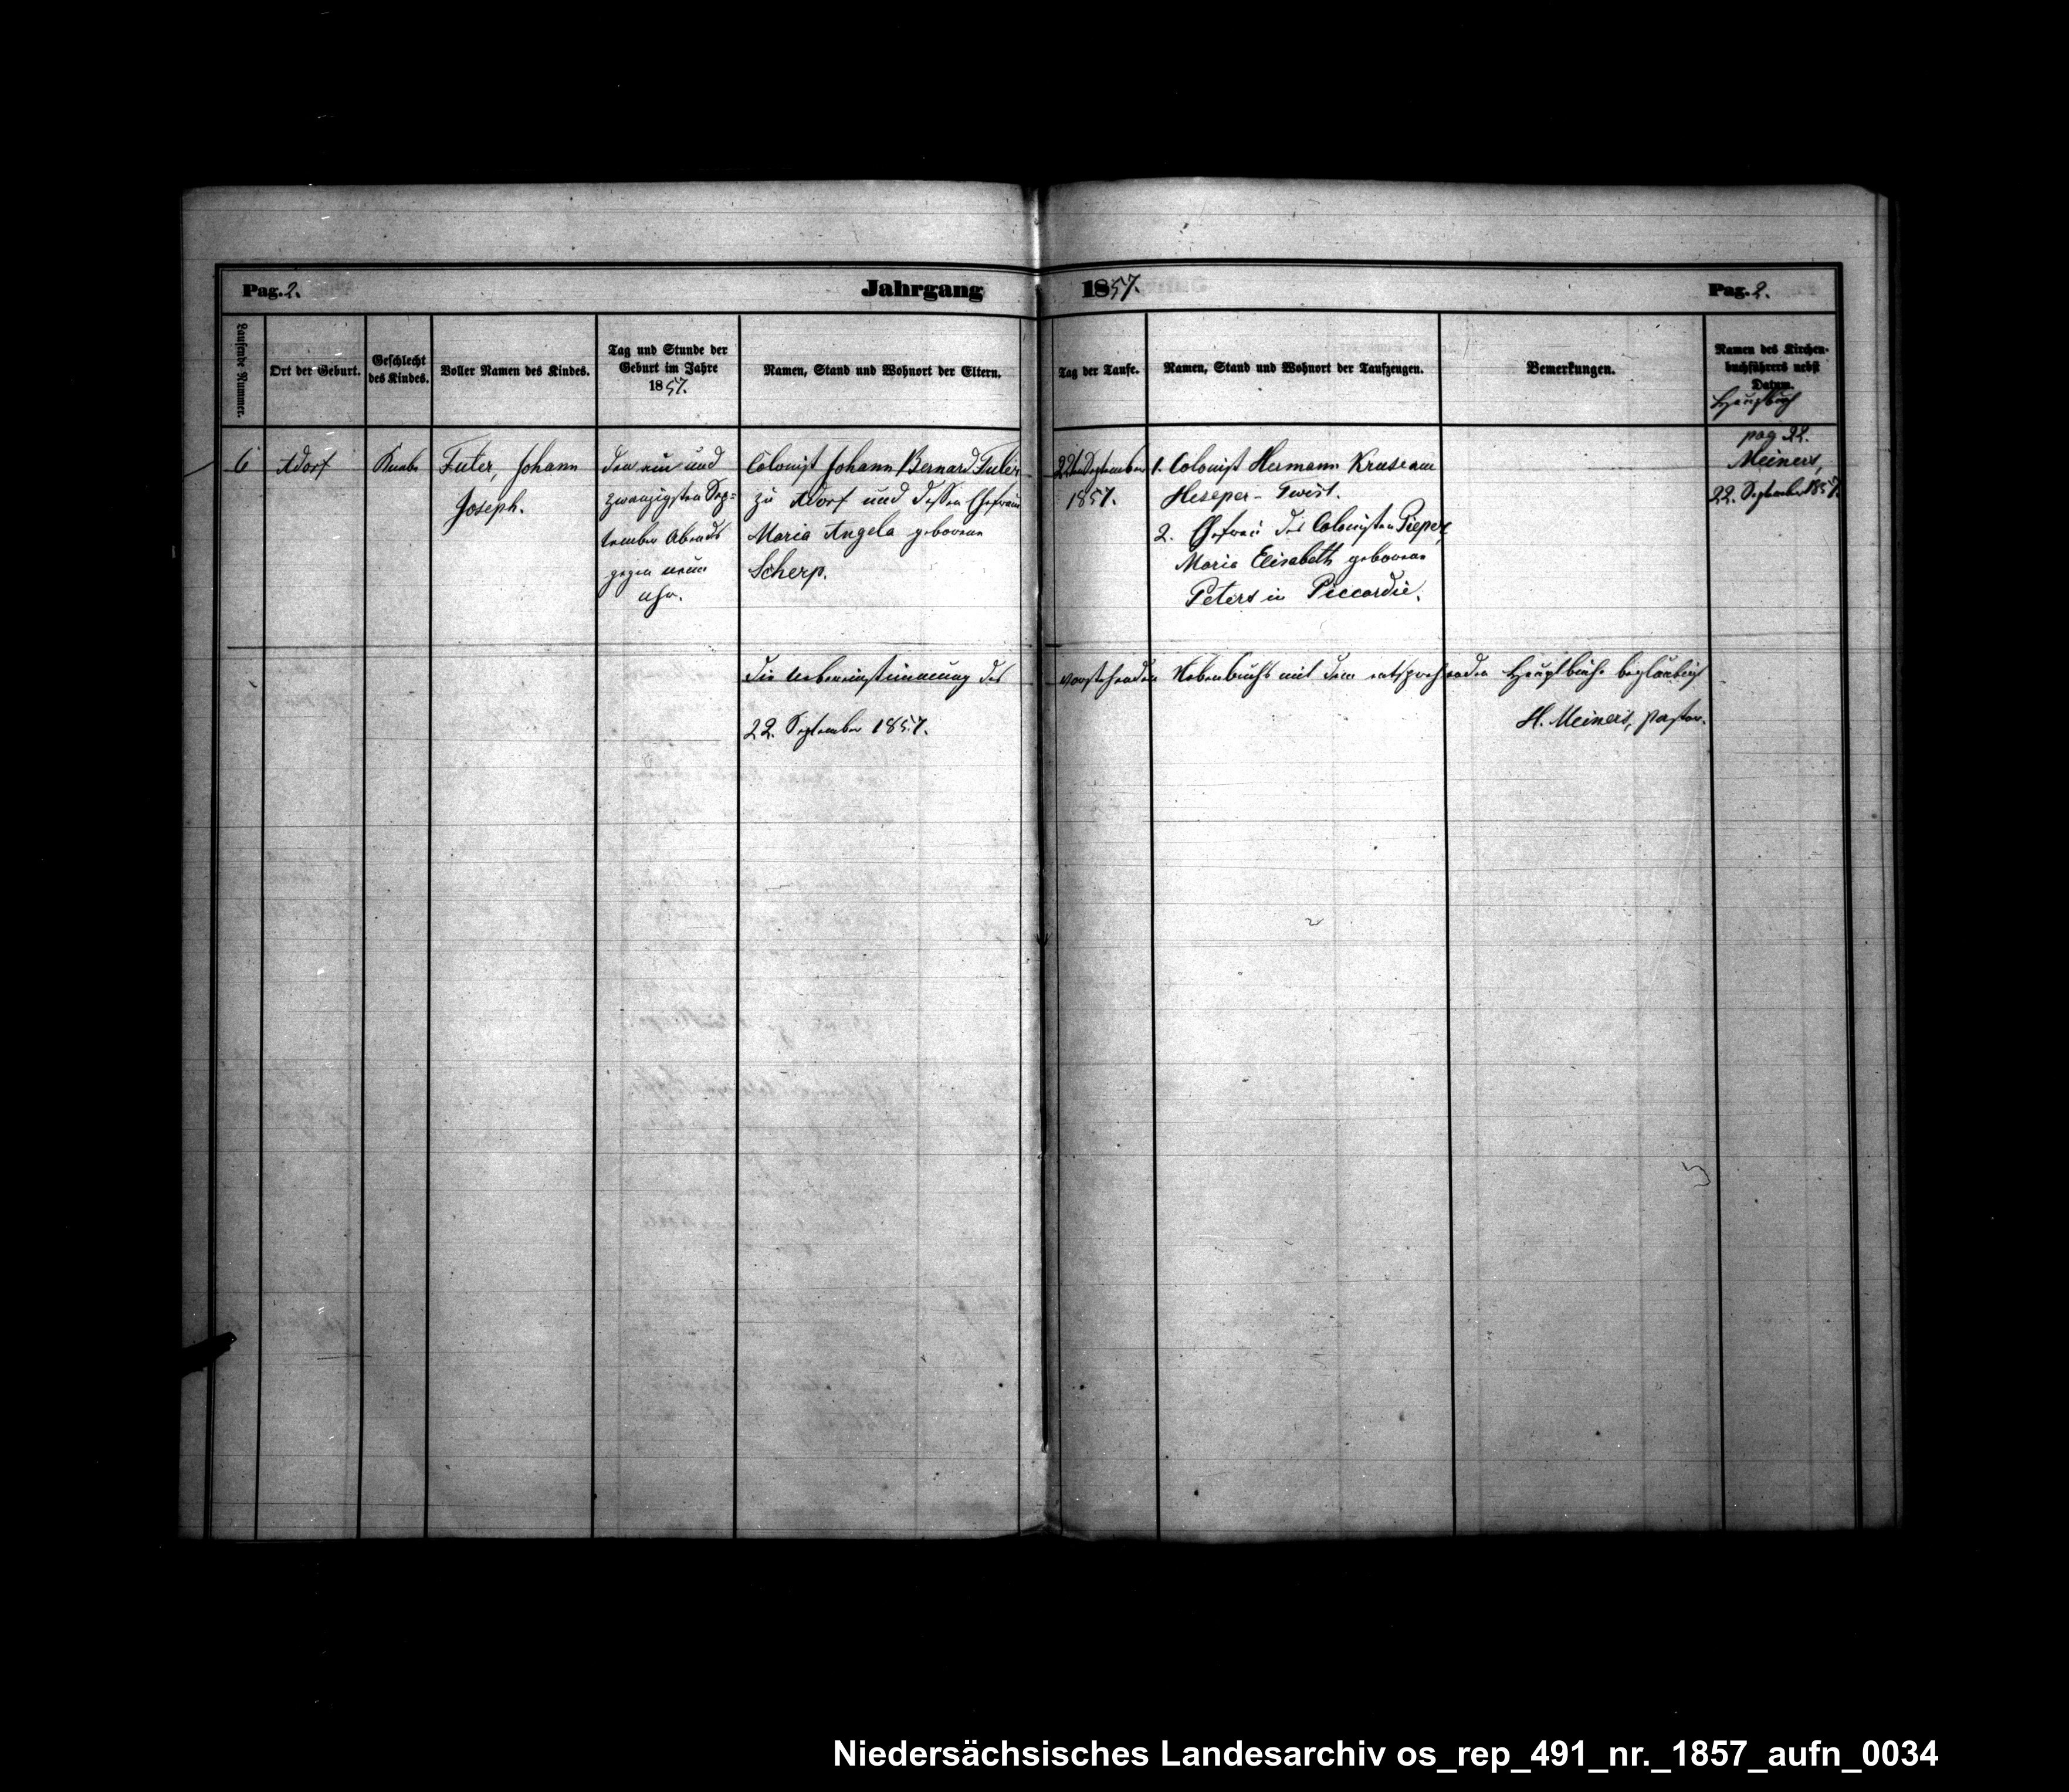 Pag. 2.
Jahrgang 1857.
Pag. 2.
Laufende Nummer.
Ort der Geburt.
Geschlecht
des Kindes.
Voller Namen des Kindes.
Tag und Stunde der
Geburt im Jahre
1857.
Namen, Stand und Wohnort der Eltern.
Tag der Taufe.
Namen, Stand und Wohnort der Taufzeugen.
Bemerkungen.
Namen des Kirchen-
buchführers nebst
Datum.
Hauptbuch
pag 22.
6
Adorf
Knabe
Futer, Johann
Joseph.
den ein und
zwanzigsten Sep=
tember Abends
gegen neun
Uhr.
Colonist Johann Bernard Futer
zu Adorf und dessen Ehefrau
Maria Angela geborene
Scherp.
22ten September
1857.
1. Colonist Hermann Kruse am
Heseper-Twist.
2. Ehefrau des Colonisten Pieper,
Maria Elisabeth geborene
Peters in Piccardie.
Meiners,
22. September 1857.
Die Uebereinstimmung des vorstehenden Nebenbuchs mit dem entsprechenden Hauptbuche beglaubigt
22. September 1857.
H. Meiners, Pastor.
Niedersächsisches Landesarchiv os_rep_491_nr._1857_aufn_0034